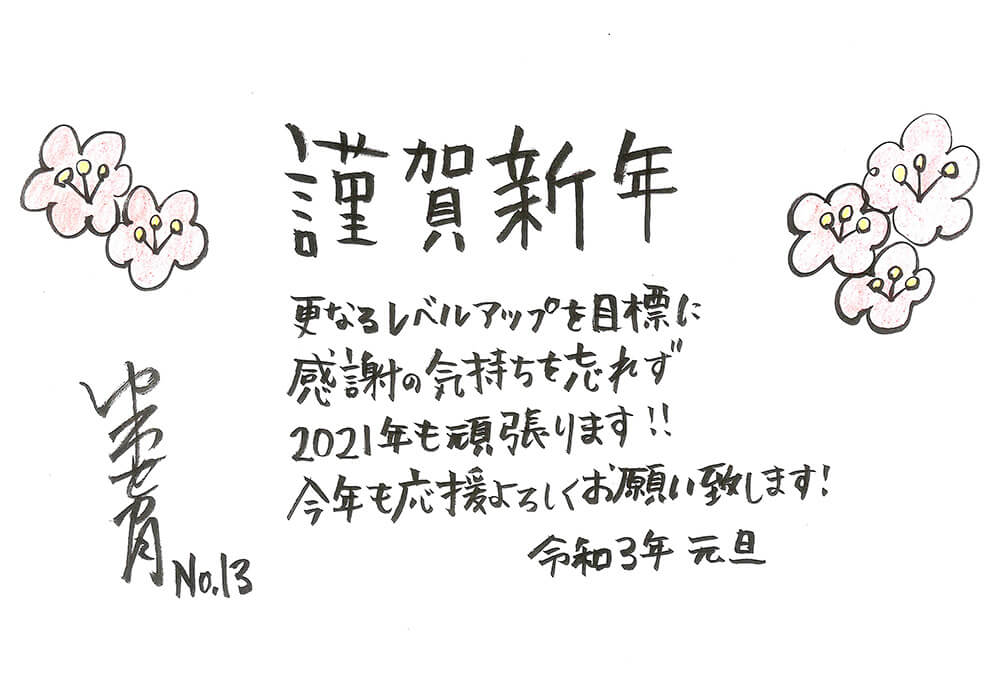 謹賀新年
更なるレベルアップを目標に
感謝の気持ちを忘れず
2021年も頑張ります!!
今年も応援よろしくお願い致します!
令和3年 元旦
No.13